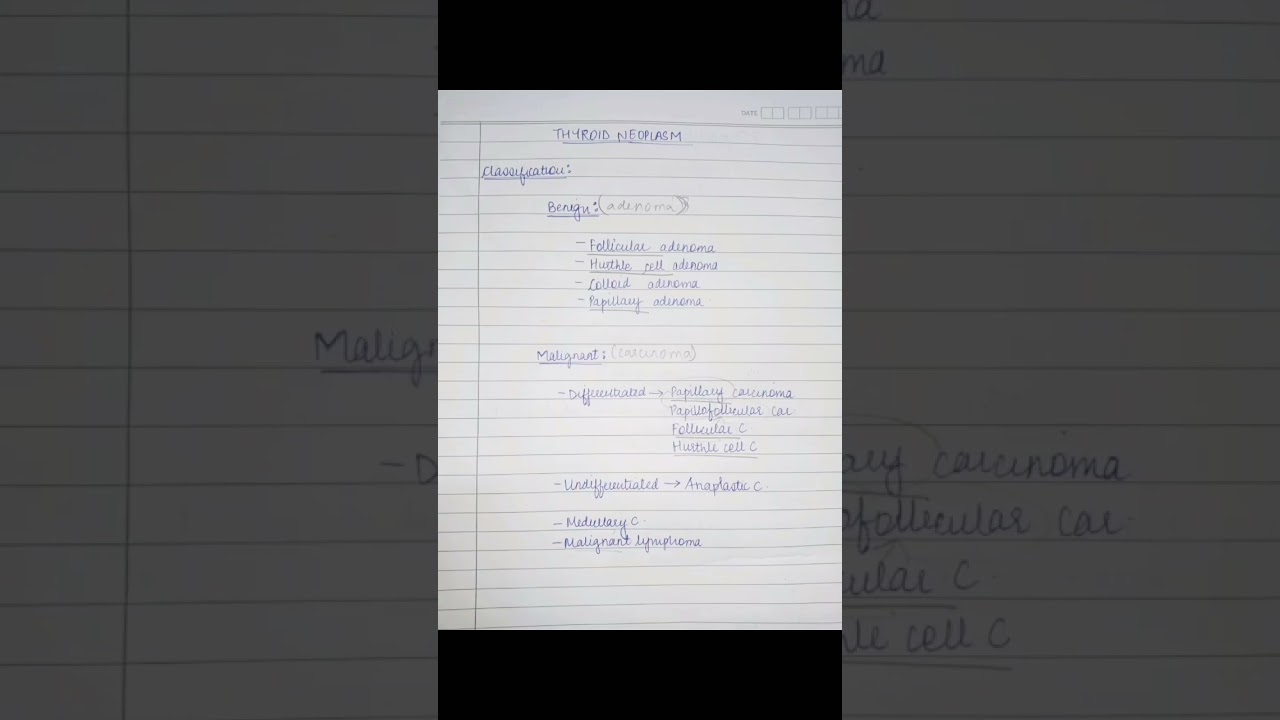 DATE
THYROID NEOPLASM
Classification:
Benign: (adenoma)
- Follicular adenoma
- Hurthle cell adenoma
- Colloid adenoma
- Papillary adenoma
Malignant: (carcinoma)
- Differentiated → Papillary carcinoma
Papillofollicular car
Follicular C
Hurthle cell C
- Undifferentiated → Anaplastic C.
- Medullary C.
- Malignant lymphoma